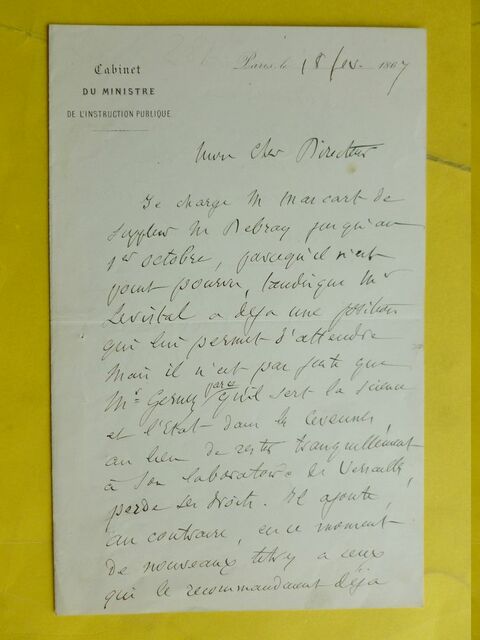 Cabinet
DU MINISTRE
DE L'INSTRUCTION PUBLIQUE
Paris, le 18 fev. 1867
Mon cher Directeur
Je charge M Mascart de
suppléer M Debray jusqu'au
1er octobre, parcequ'il n'est
point pourvu, tandisque Mr
Levistal a déja une position
qui lui permet d'attendre
Mais il n'est pas juste que
Mr Gernez parce qu'il sert la science
et l'Etat dans les Cevennes,
au lieu de rester tranquillement
à son laboratoire de Versailles,
perde ses droits. Il ajoute,
au contraire, en ce moment
de nouveaux titres a ceux
qui le recommandent déjà